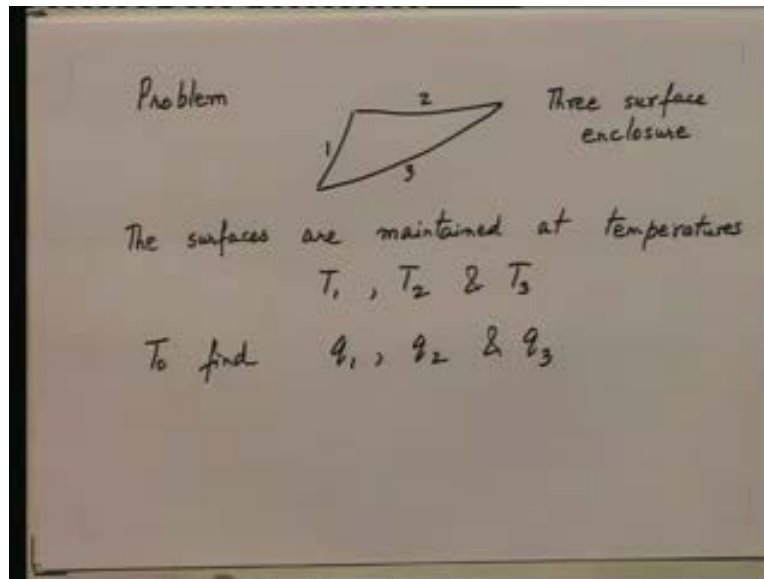 Problem
2
Three surface
enclosure
1
3
The surfaces are maintained at temperatures
T₁ , T₂ & T₃
To find q₁ , q₂ & q₃